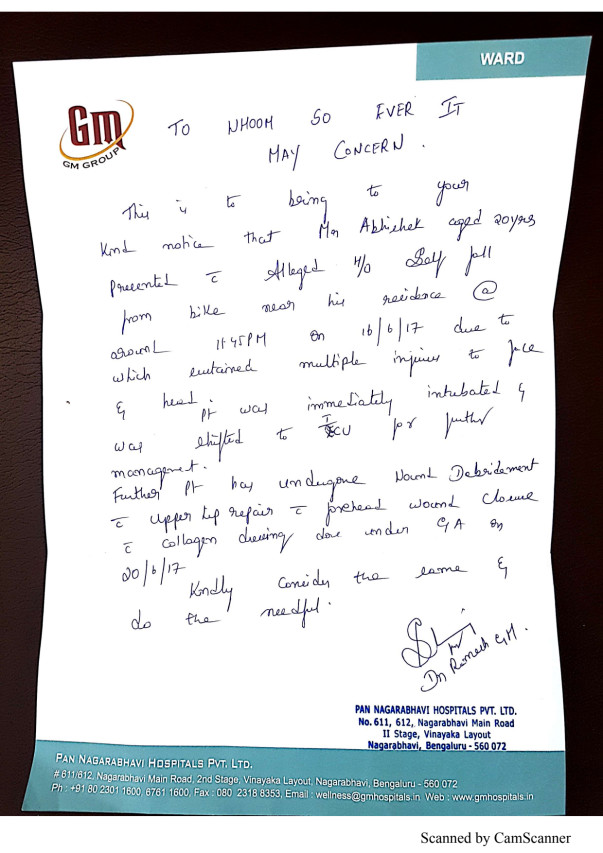 WARD
Gm
GM GROUP
TO WHOOM SO EVER IT
MAY CONCERN.
This is to being to your
Kind notice that Mr Abhishek aged 20yrs
presented c̄ Alleged H/O Self fall
from bike near his residence @
around 11:45PM on 16/6/17 due to
which sustained multiple injuries to face
& head. Pt was immediately intubated &
was shifted to ICU for further
management.
Further Pt has undergone Wound Debridement
c̄ upper lip repair c̄ forehead wound closure
c̄ collagen dressing done under GA on
20/6/17
Kindly consider the same &
do the needful.
Dr Ramesh G.H.
PAN NAGARABHAVI HOSPITALS PVT. LTD.
No. 611, 612, Nagarabhavi Main Road
II Stage, Vinayaka Layout
Nagarabhavi, Bengaluru - 560 072
PAN NAGARABHAVI HOSPITALS PVT. LTD.
# 611/612, Nagarabhavi Main Road, 2nd Stage, Vinayaka Layout, Nagarabhavi, Bengaluru - 560 072
Ph : +91 80 2301 1600, 6761 1600, Fax : 080 2318 8353, Email : wellness@gmhospitals.in Web : www.gmhospitals.in
Scanned by CamScanner